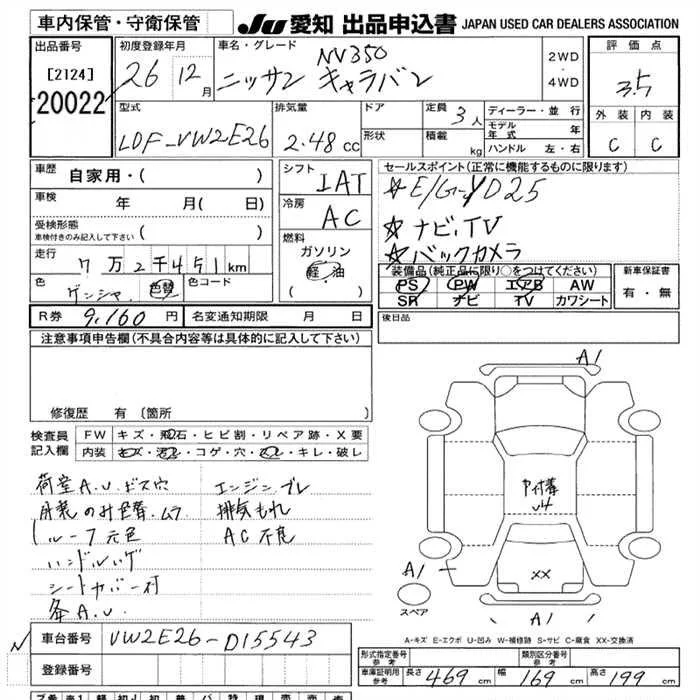 車内保管・守衛保管
JU 愛知 出品申込書 JAPAN USED CAR DEALERS ASSOCIATION
出品番号 [2124] 20022
初度登録年月 26 12月
車名・グレード NV350
ニッサン キャラバン
2WD ・ 4WD
評価点 3.5
外装 内装
C C
型式 LDF-VW2E26
排気量 2.48cc
ドア
形状
定員 3人
積載 kg
ディーラー・並行
モデル年式 年
ハンドル 左・右
車歴 自家用・( )
車検 年 月( 日)
受検形態
車検付きのみ記入して下さい ( )
走行 7万2千451km
色 色替 色コード
シフト IAT
冷房 AC
燃料
ガソリン
軽・油
( )
セールスポイント(正常に機能するものに限ります)
☆E/G-YD25
☆ナビ,TV
☆バックカメラ
装備品(純正品に限り○をつけてください)
PS PW エアB AW
SR ナビ TV カワシート
新車保証書
有・無
R券 9,160円 名変通知期限 月 日
後日品
注意事項申告欄(不具合内容等は具体的に記入して下さい)
修復歴 有 〔箇所 〕
検査員記入欄
FW キズ・飛石・ヒビ割・リペア跡・X要
内装 キズ・汚レ・コゲ・穴・ズレ・キレ・破レ
荷室A.U.ビス穴 エンジンブレ
排気もれ
ルーフ元色 AC不良
ハンドルハゲ
シートカバー付
A.U.
A1
XX
A1
A1
スペア
A-キズ E-エクボ U-凹み W-補修跡 S-サビ C-腐食 XX-交換済
車台番号 VW2E26-D15543
登録番号
形式指定番号 参考
類別区分番号 参考
車庫証明用 参考 長さ 469cm 幅 169cm 高さ 199cm